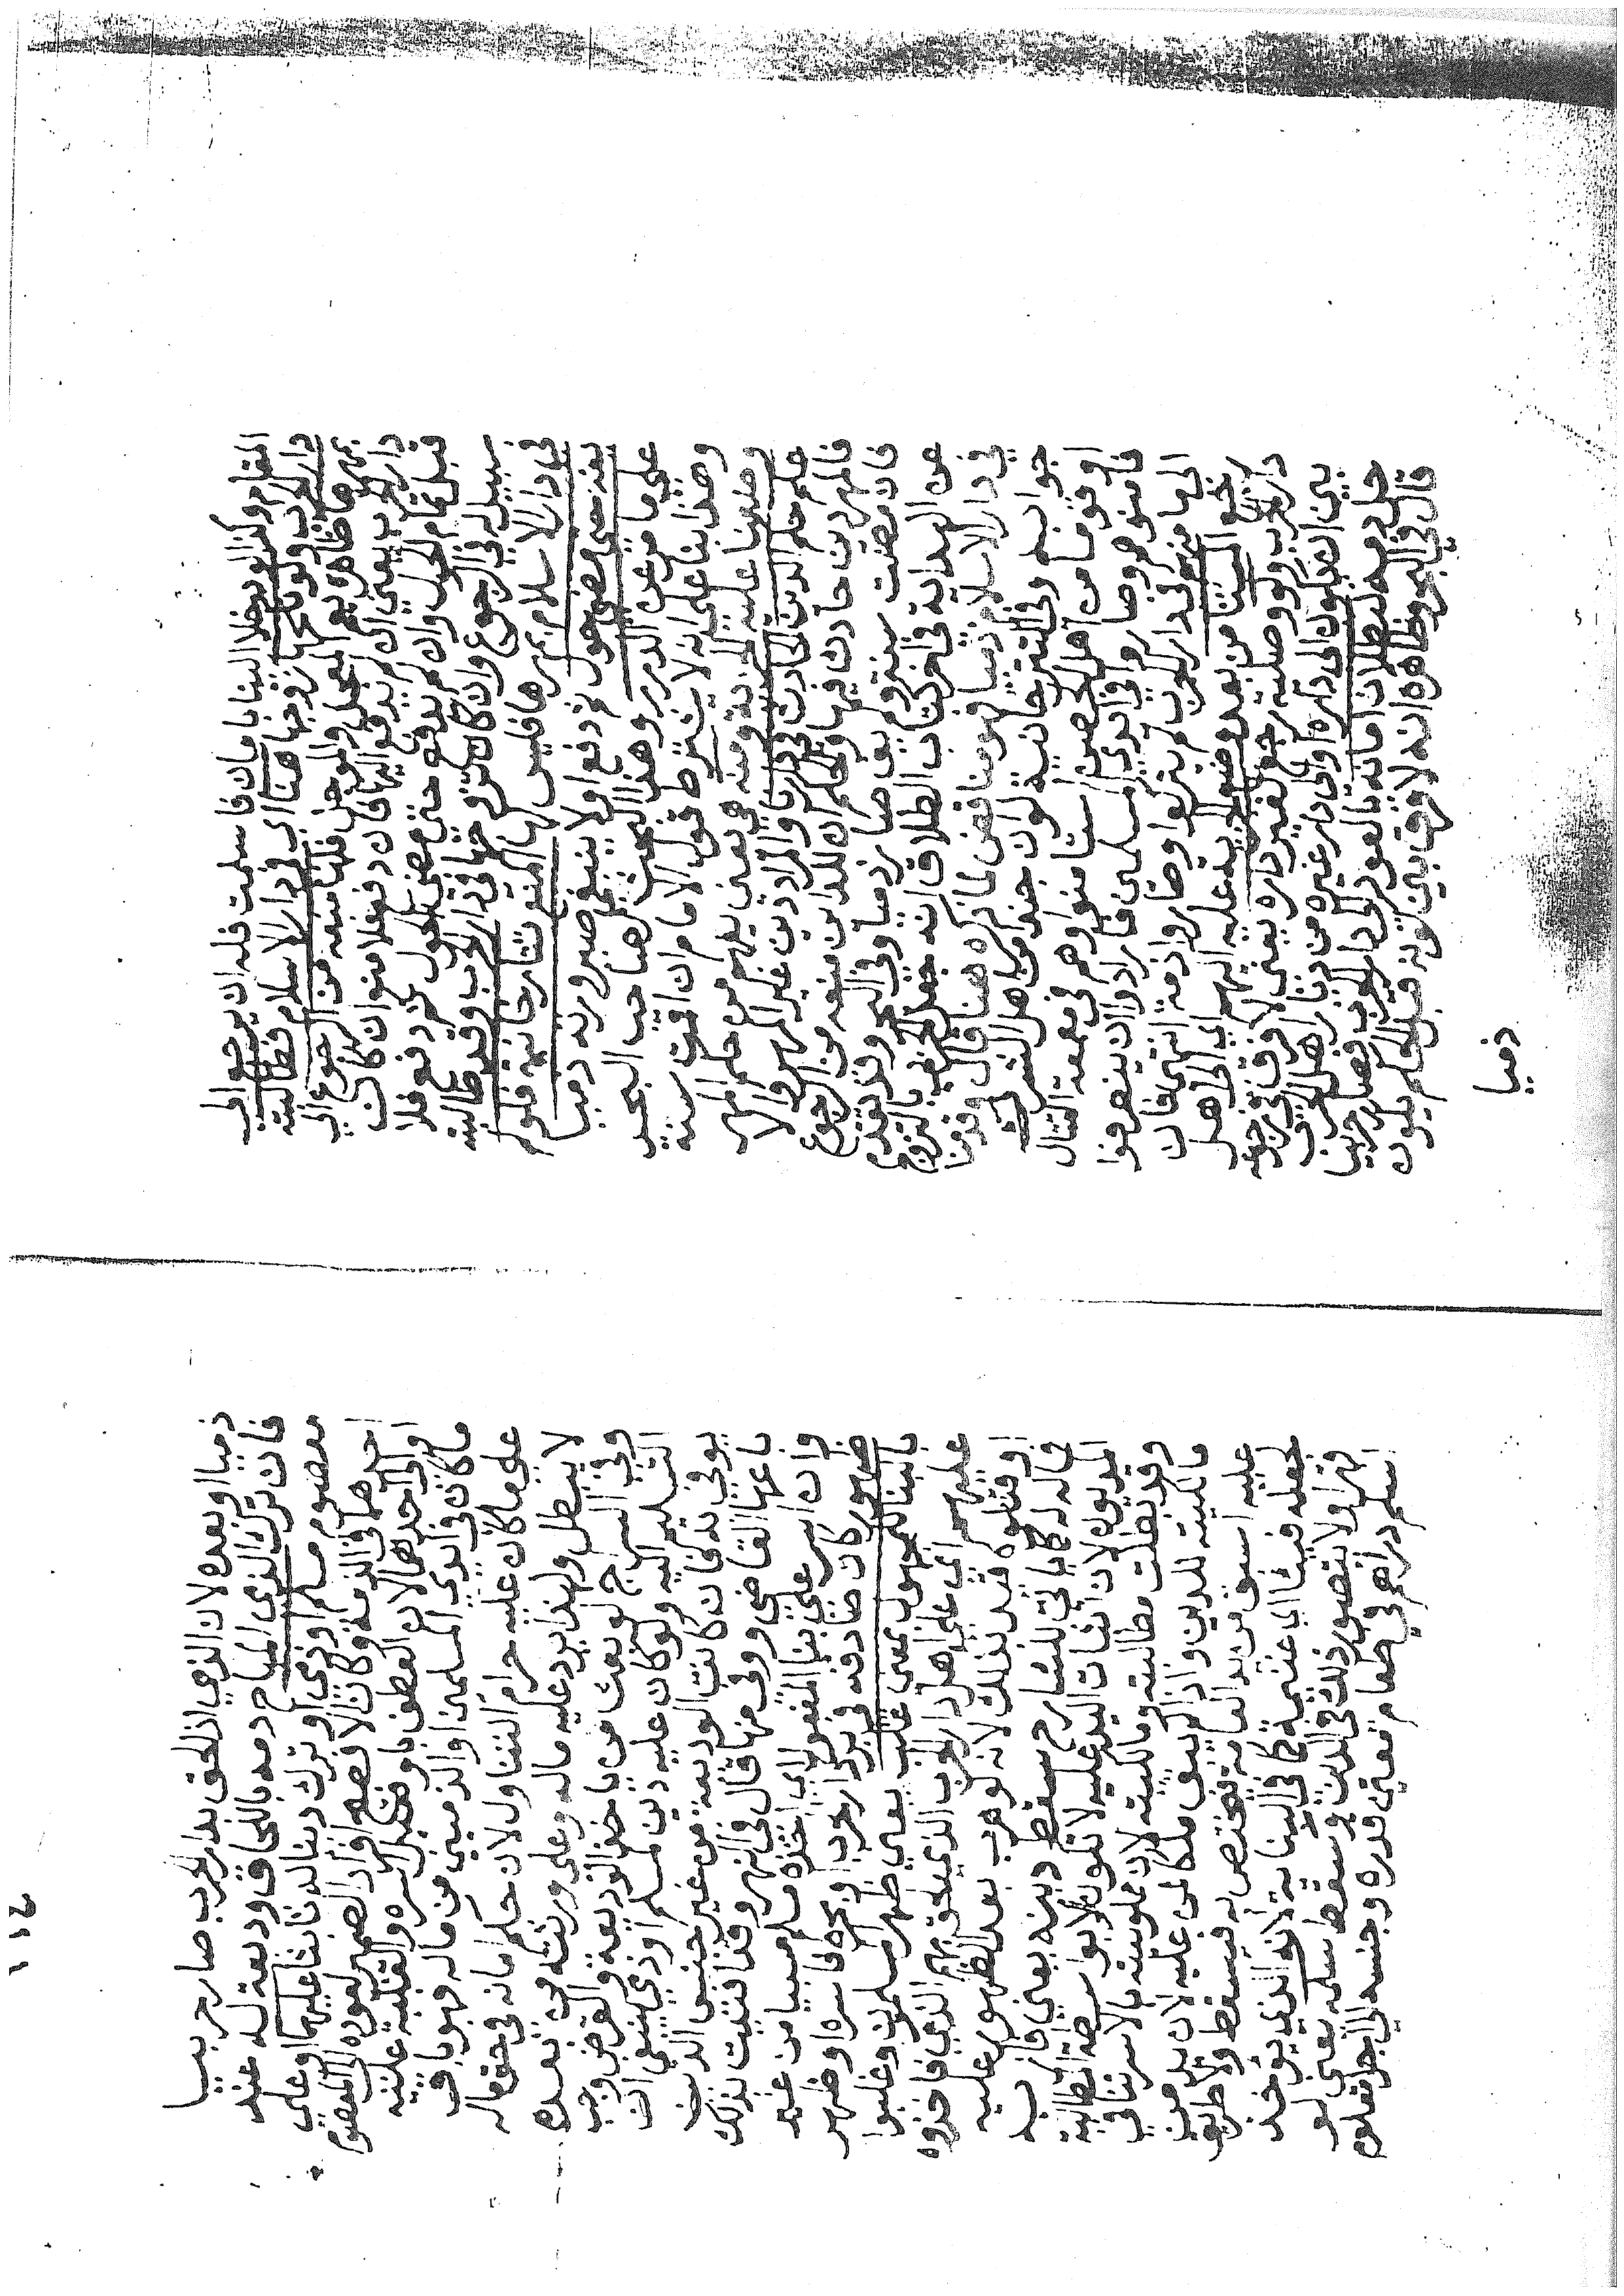 المقام وكذا لو دخلا الينا بامان فاسلمت فله ان يرجع الى
دار الحرب ولو نكحها زوجها هنا اي في دار الاسلام فطالبته
بمهرها ظاهره يعم المعجل والمؤجل فلها منعه من الرجوع الى
دار الحرب يعني ان لم يدفع اليها فان دفع فلا منع وان كان
قبل تمام الحول وان لم يدفع حتى مضى الحول ثم دفع فلا
سبيل له في الرجوع وان كان تزوجها في دار الحرب وقد طالبته
في دار الاسلام بمهرها فليس لها المنع تتارخانية فلو لم
يفه حتى مضى حول ثم دفع اولا ينبغي صيرورته ذميا
على ما مر عن الدرر وهذا البحث لصاحب البحر
وهذا بناء على انه لا يشترط قول الامام ان اقمت سنة
وضعنا عليك الجزية ومنه يعني يفهم من حكم المهر
علم حكم الدين الحادث في دارنا والمراد دين غير المهر والا
فالمهر دين حادث فيها وتعلم ان للدائن منعه من الرجوع
فان مضت سنة ولم يوف صار ذميا وفي البحر وقد تقدم
عن الهداية في اخر كتاب الطلاق انه جعل الحربي بالتزوج
في دار الاسلام ذميا فهو مناقض لما ذكره هنا قال وقدمنا
جوابه وفي التترخانية لو ان جندا من اهل الشرك
او قوما من اهل الحصن استامنوا وهم في معمعة القتال
فامنوهم وصاروا في ايدي المسلمين فارادوا ان ينصرفوا
الى ما منهم في دار الحرب لم يتركوا وصاروا ذمة انتهى فان
رجع المستامن بعد وضع الجزية عليه اليهم اي الى اهل
دار الحرب ولو وصلية رجع لغير داره يعني لا فرق في رجوعه
بين ان يكون الى داره او الى دار غيره من ديار اهل الحرب
حل دمه لبطلان امانه بالعود الى دار الحرب فصار حربيا
قال في البحر وظاهره انه لا فرق بين كونه قبل الحكم بكونه
ذميا
ذميا او بعده لان الذمي اذا لحق بدار الحرب صار حربيا
فان ترك الذي المباح دمه باللحاق وديعة له عند
معصوم مسلم او ذمي او ترك دينا له ثابتا عليهما او على
احدهما في الذمة وكان الافصح افراد الضمير لعوده الى المعصوم
او الى احدهما لان العطف باو اسره والغلبة عليه
ما كان في ايدي المسلمين والذميين من ماله فهو باق
على ما كان عليه حرام التناول لان حكم امانه في حق ماله
لا يبطل ولهذا يرد عليه ماله وعلى ورثته من بعده
وفي السراج لو بعث من ياخذ الوديعة والقرض وجب
التسليم اليه ولو كان عليه دين مسلم او ذمي ينبغي ان
يوفى به فان كانت الوديعة من غير جنس الدين
باعها القاضي ووفى منها قال في النهر وقد افتيت بذلك
وان اسر على بناء المفعول اي اخذه مسلم مسبيا من غير
ظهور كان صادفه في بر دار الحرب او بحره فاسره او ظهر
بالبناء للمجهول بمعنى غلب يعني ظهر المسلمون وغلبوا
عليهم اي على اهل دار الحرب الذي لحق بهم الذمي فاخذوه
او قتلوه قيد بذلك لانه لو هرب بعد الظهور عليه
فماله له كما ياتي للشارح سقط دينه يعني فاز به
المديون لان اثبات اليد عليه لا تكون الا بواسطة المطالبة
وقد بطلت مطالبته ومالكيته لان مملوكيته بالاسر تنافي
مالكيته للدين واذا لم يبق ملكا لمن عليه لان يد من
عليه اسبق من يد العامة فيختص به فيسقط ولا طريق
لجعله فيئا اي غنيمة كما في البناية لانه الذي يؤخذ
قهرا ولا يتصور ذلك في الدين وسقط سلمه يعني لو
اسلم دراهم في طعام معين قدره وجنسه الى اجل معلوم